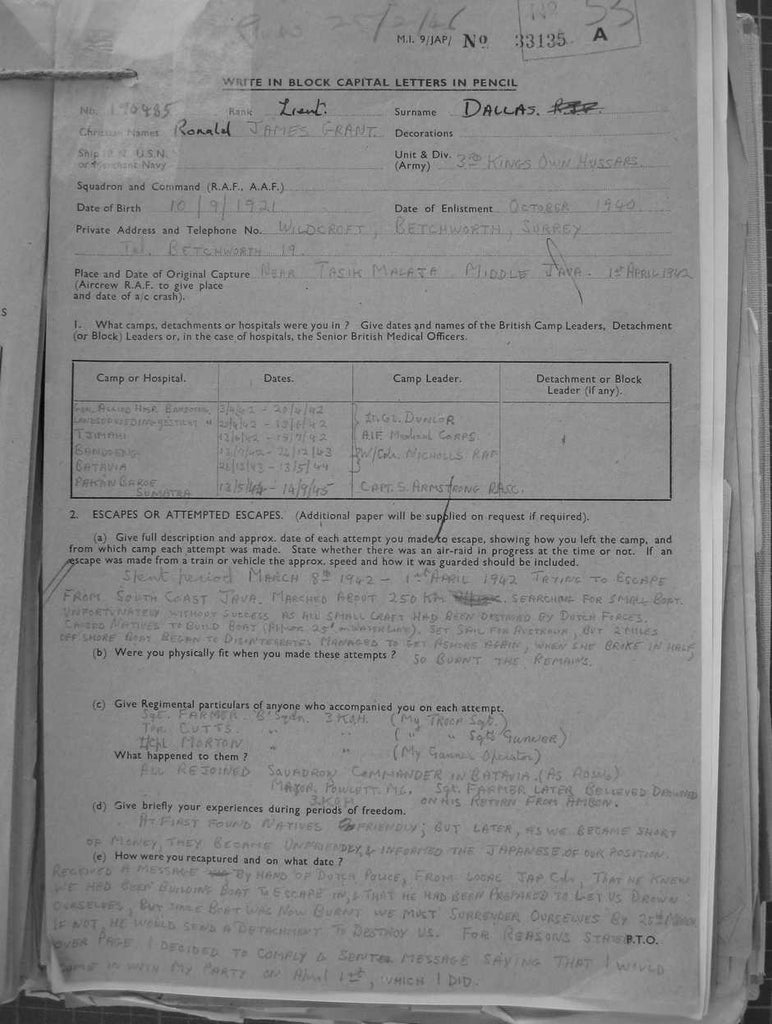 25/2/46
53
M.I. 9/JAP/ No 33135 A
WRITE IN BLOCK CAPITAL LETTERS IN PENCIL
No. 190485 Rank Lieut. Surname DALLAS.
Christian Names Ronald JAMES GRANT Decorations
Ship R.N. U.S.N. Unit & Div. 3RD KINGS OWN HUSSARS.
or Merchant Navy (Army)
Squadron and Command (R.A.F., A.A.F.)
Date of Birth 10/9/1921 Date of Enlistment OCTOBER 1940
Private Address and Telephone No. WILDCROFT, BETCHWORTH, SURREY
Tel. BETCHWORTH 19.
Place and Date of Original Capture NEAR TASIK MALAJA MIDDLE JAVA. 1st APRIL 1942
(Aircrew R.A.F. to give place
and date of a/c crash).
1. What camps, detachments or hospitals were you in ? Give dates and names of the British Camp Leaders, Detachment
(or Block) Leaders or, in the case of hospitals, the Senior British Medical Officers.
Camp or Hospital. Dates. Camp Leader. Detachment or Block
Leader (if any).
ALLIED HOSP. BANDOENG 3/4/42 - 20/4/42
20/4/42 - 13/6/42 Lt. Col. DUNLOP
TJIMAHI 13/6/42 - 13/7/42 AIF Medical CORPS
BANDOENG 13/7/42 - 26/12/43 W/Cdr. NICHOLLS RAF
BATAVIA 26/12/43 - 13/5/44
PAKAN BAROE 13/5/44 - 14/9/45 CAPT. S. ARMSTRONG RASC.
SUMATRA
2. ESCAPES OR ATTEMPTED ESCAPES. (Additional paper will be supplied on request if required).
(a) Give full description and approx. date of each attempt you made to escape, showing how you left the camp, and
from which camp each attempt was made. State whether there was an air-raid in progress at the time or not. If an
escape was made from a train or vehicle the approx. speed and how it was guarded should be included.
Spent period MARCH 8th 1942 - 1st APRIL 1942 TRYING TO ESCAPE
FROM SOUTH COAST JAVA. MARCHED ABOUT 250 KM SEARCHING FOR SMALL BOAT.
UNFORTUNATELY WITHOUT SUCCESS AS ALL SMALL CRAFT HAD BEEN DESTROYED BY DUTCH FORCES.
CAUSED NATIVES TO BUILD BOAT SET SAIL FOR AUSTRALIA, BUT 2 MILES
OFF SHORE BOAT BEGAN TO DISINTEGRATE. MANAGED TO GET ASHORE AGAIN, WHEN SHE BROKE IN HALF,
(b) Were you physically fit when you made these attempts ? SO BURNT THE REMAINS.
(c) Give Regimental particulars of anyone who accompanied you on each attempt.
Sgt. FARMER B Sqdn. 3 K.O.H. (My TROOP Sgt.)
Tpr. CUTTS. " " ( " " Sgts GUNNER)
MORTON " " (My Gunner Operator)
What happened to them ?
ALL REJOINED SQUADRON COMMANDER IN BATAVIA. (AS POWS)
MAJOR POWLETT MC. Sgt. FARMER LATER BELIEVED DROWNED
3.K.O.H. ON HIS RETURN FROM AMBON.
(d) Give briefly your experiences during periods of freedom.
AT FIRST FOUND NATIVES FRIENDLY; BUT LATER, AS WE BECAME SHORT
OF MONEY, THEY BECAME UNFRIENDLY, & INFORMED THE JAPANESE OF OUR POSITION.
(e) How were you recaptured and on what date ?
RECEIVED A MESSAGE BY HAND OF DUTCH POLICE, FROM LOCAL JAP Cdr, THAT HE KNEW
WE HAD BEEN BUILDING BOAT TO ESCAPE IN, & THAT HE HAD BEEN PREPARED TO LET US DROWN
OURSELVES, BUT SINCE BOAT WAS NOW BURNT WE MUST SURRENDER OURSELVES BY 25th March
IF NOT, HE WOULD SEND A DETACHMENT TO DESTROY US. FOR REASONS STATED P.T.O.
OVER PAGE, I DECIDED TO COMPLY & SENT MESSAGE SAYING THAT I WOULD
COME IN WITH MY PARTY ON April 1st, WHICH I DID.